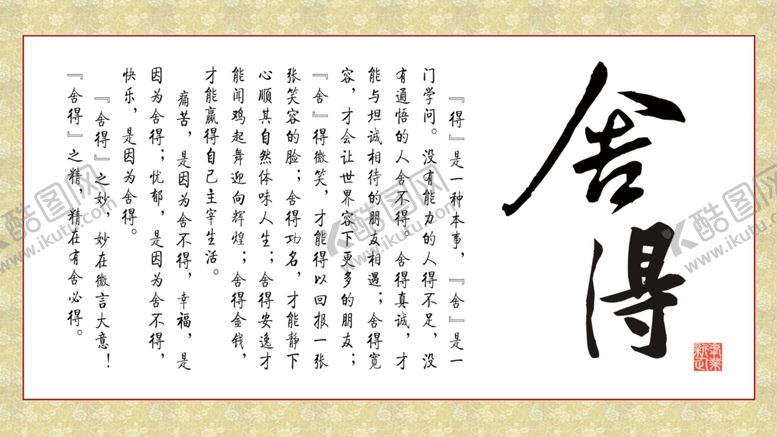 舍得
『得』是一种本事，『舍』是一
门学问。没有能力的人得不足，没
有通悟的人舍不得。舍得真诚，才
能与坦诚相待的朋友相遇；舍得宽
容，才会让世界容下更多的朋友；
『舍』得微笑，才能得以回报一张
张笑容的脸；舍得功名，才能静下
心顺其自然体味人生；舍得安逸才
能闻鸡起舞迎向辉煌；舍得金钱，
才能赢得自己主宰生活。
痛苦，是因为舍不得，幸福，是
因为舍得；忧郁，是因为舍不得，
快乐，是因为舍得。
『舍得』之妙，妙在微言大意！
『舍得』之精，精在有舍必得。
酷图网
www.ikutu.com
酷图网
www.ikutu.com
酷图网
www.ikutu.com